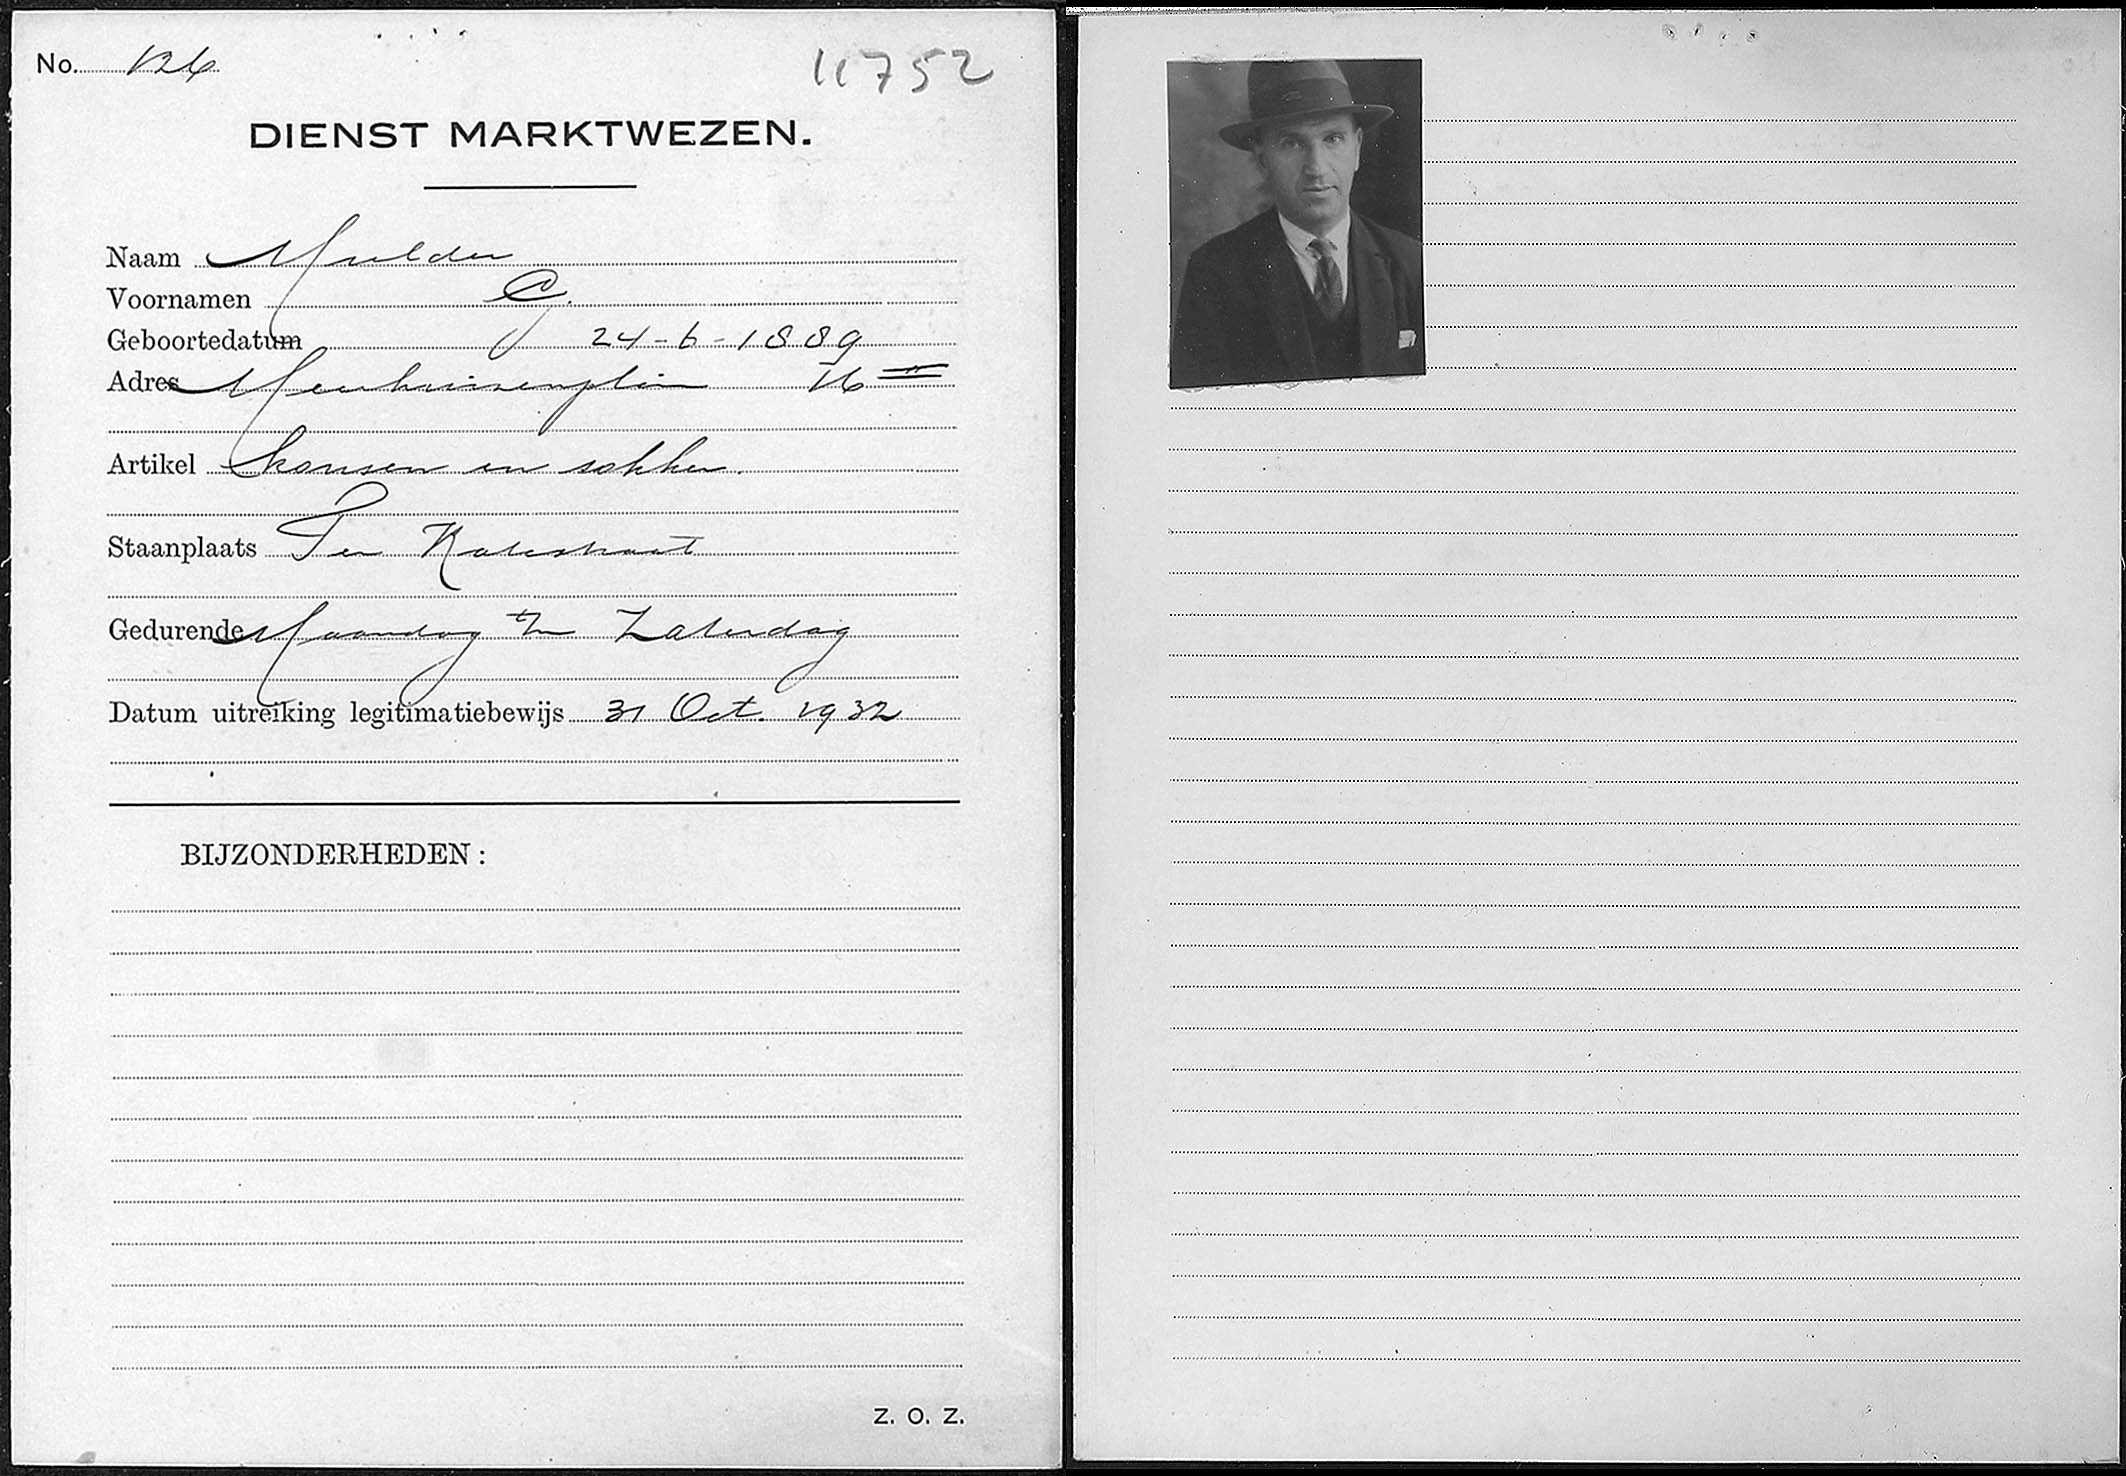 No. 126
11752
DIENST MARKTWEZEN.
Naam Mulder
Voornamen
Geboortedatum 24-6-1889
Adres Meerhuizenplein 16 II
Artikel kousen en sokken.
Staanplaats Ten Katestraat
Gedurende Maandag t/m Zaterdag
Datum uitreiking legitimatiebewijs 31 Oct. 1932
BIJZONDERHEDEN:
Z. O. Z.